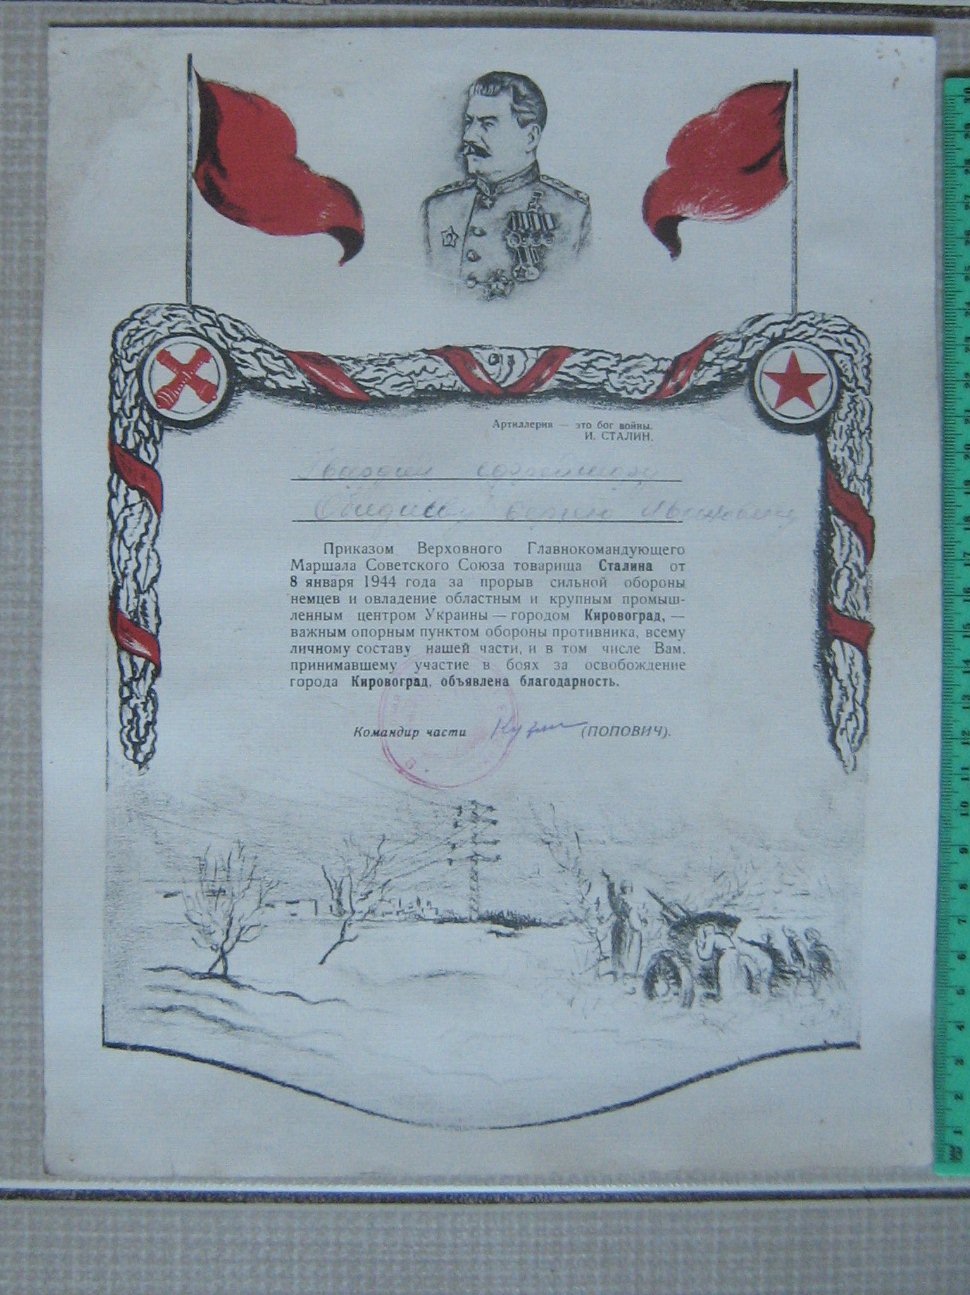 Артиллерия — это бог войны.
И. СТАЛИН.
Гвардии
Приказом Верховного Главнокомандующего
Маршала Советского Союза товарища Сталина от
8 января 1944 года за прорыв сильной обороны
немцев и овладение областным и крупным промыш-
ленным центром Украины — городом Кировоград, —
важным опорным пунктом обороны противника, всему
личному составу нашей части, и в том числе Вам,
принимавшему участие в боях за освобождение
города Кировоград, объявлена благодарность.
Командир части (ПОПОВИЧ).